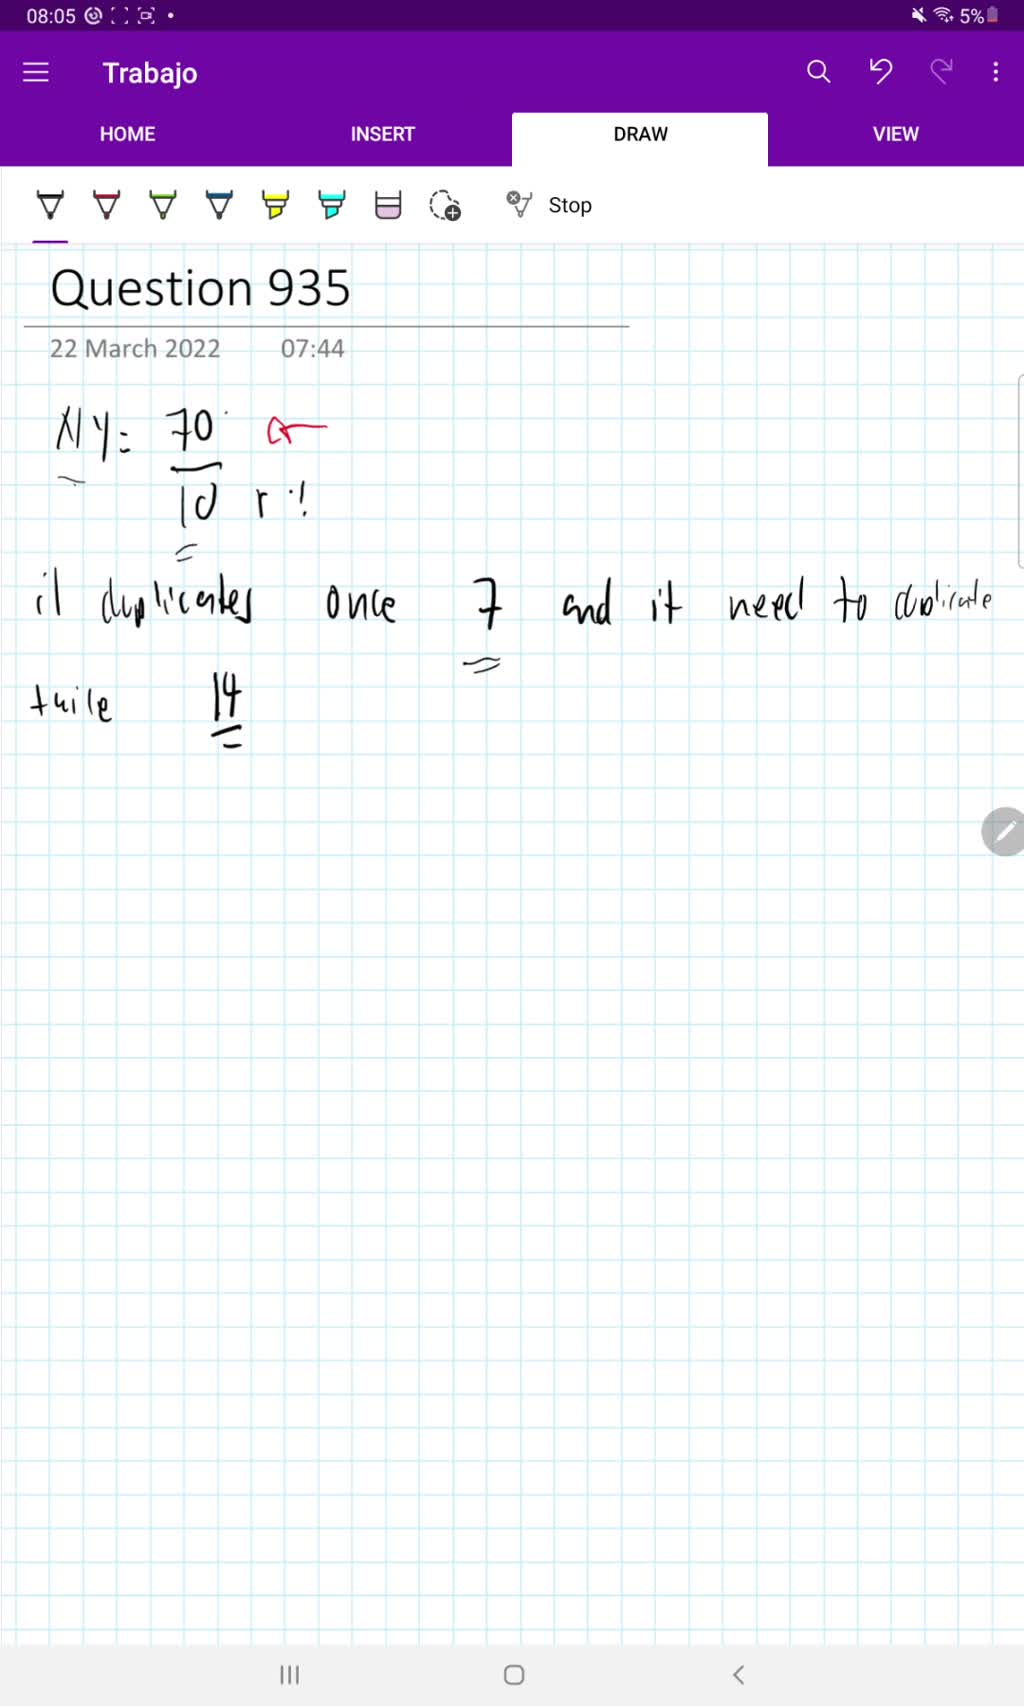 08:05 5%
Trabajo
HOME INSERT DRAW VIEW
Stop
Question 935
22 March 2022 07:44
y = 70
10 r
it duplicates once 7 and it need to duplicate
14